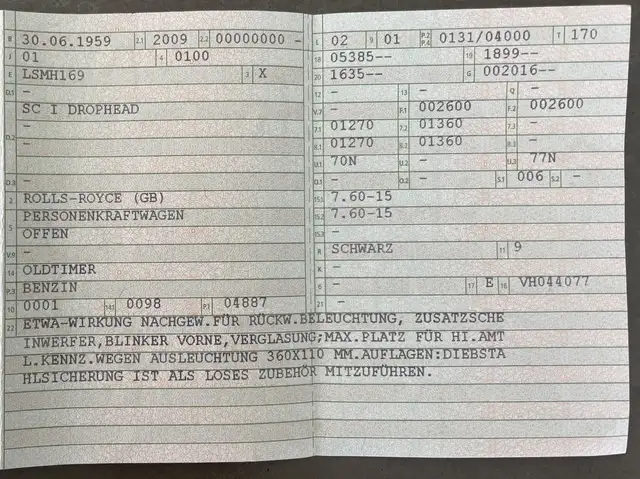 B 30.06.1959 2.1 2009 2.2 00000000 -
J 01 4 0100
E LSMH169 3 X
D.1 -
D.2 SC I DROPHEAD
-
-
D.3 -
2 ROLLS-ROYCE (GB)
5 PERSONENKRAFTWAGEN
OFFEN
V.9 -
14 OLDTIMER
P.3 BENZIN
10 0001 14.1 0098 P.1 04887
L 02 9 01 P.2 P.4 0131/04000 T 170
18 05385-- 19 1899--
20 1635-- G 002016--
12 - 13 - Q -
V.7 - F.1 002600 F.2 002600
7.1 01270 7.2 01360 7.3 -
8.1 01270 8.2 01360 8.3 -
U.1 70N U.2 - U.3 77N
O.1 - O.2 - S.1 006 S.2 -
15.1 7.60-15
15.2 7.60-15
15.3 -
R SCHWARZ 11 9
K -
6 - 17 E 16 VH044077
21 -
22 ETWA-WIRKUNG NACHGEW.FÜR RÜCKW.BELEUCHTUNG, ZUSATZSCHE
INWERFER,BLINKER VORNE,VERGLASUNG;MAX.PLATZ FÜR HI.AMT
L.KENNZ.WEGEN AUSLEUCHTUNG 360X110 MM.AUFLAGEN:DIEBSTA
HLSICHERUNG IST ALS LOSES ZUBEHÖR MITZUFÜHREN.